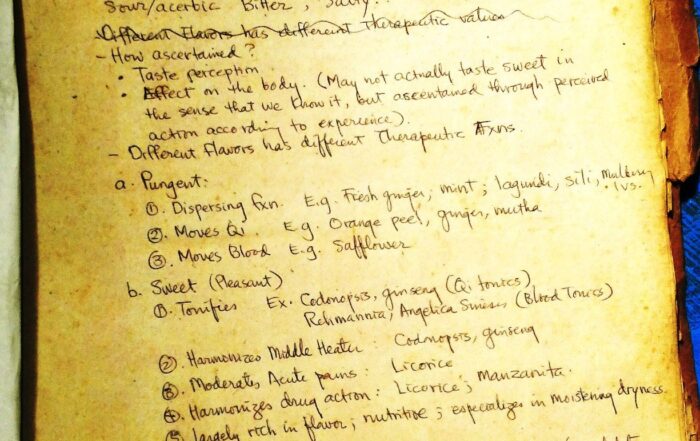 Sour/acerbic Bitter, Salty.
Different Flavors has different Therapeutic values
- How ascertained?
• Taste perception
• Effect on the body. (May not actually taste sweet in
the sense that we know it, but ascentained through perceived
action according to experience).
- Different Flavors has different Therapeutic Fxns.
a. Pungent:
①. Dispersing fxn. E.g. Fresh ginger; mint; lagundi, sili, Mulberry
lvs.
②. Moves Qi. E.g. Orange peel, ginger, mutha
③. Moves Blood E.g. Safflower
b. Sweet (Pleasant)
①. Tonifies Ex. Codonopsis, ginseng (Qi tonics)
Rehmannia, Angelica Sinises (Blood Tonics)
②. Harmonizes Middle Heater: Codonopsis, ginseng
③. Moderates Acute pains: Licorice
④. Harmonizes drug action: Licorice; Manzanita.
⑤. Largely rich in flavor; nutritive; especializes in moistening dryness.